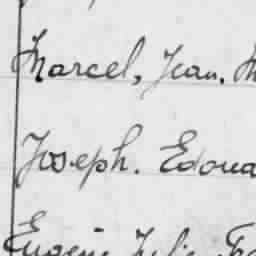 Marcel, Jean, M
Joseph. Edoua
Eugène Julie Fra